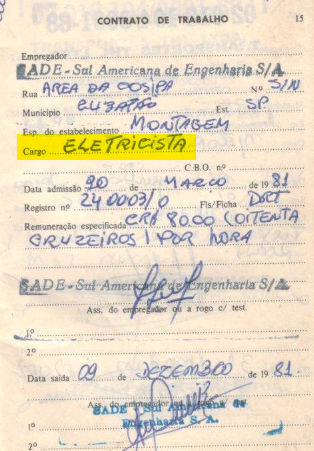 CONTRATO DE TRABALHO 15
Empregador
SADE - Sul Americana de Engenharia S/A
Rua AREA DA COSIPA Nº S/N
Município CUBATÃO Est. SP
Esp. do estabelecimento MONTAGEM
Cargo ELETRICISTA
C.B.O. nº
Data admissão 20 de MARCO de 1981
Registro nº 240003/0 Fls/Ficha DRT
Remuneração especificada CR$ 80,00 (OITENTA
CRUZEIROS) POR HORA
SADE - Sul Americana de Engenharia S/A
Ass. do empregador ou a rogo c/ test.
1º
2º
Data saída 09 de DEZEMBRO de 1981.
Ass. do empregador ou a rogo c/ test.
SADE - Sul Americana de
Engenharia S. A.
1º
2º